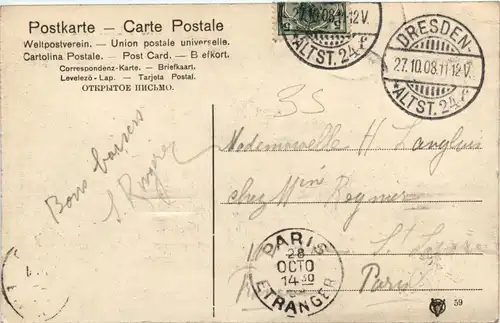 Postkarte – Carte Postale
Weltpostverein. — Union postale universelle.
Cartolina Postale. — Post Card. — B efkort.
Correspondenz-Karte. — Briefkaart.
Levelező-Lap. — Tarjeta Postal.
ОТКРЫТОЕ ПИСЬМО.
27.10.08.11-12V.
ALTST. 24
DRESDEN-
27.10.08.11-12V.
ALTST. 24
Bons baisers
Mademoiselle H
chez
Regnier
Paris
PARIS
28
OCTO
14 30
ETRANGER
59